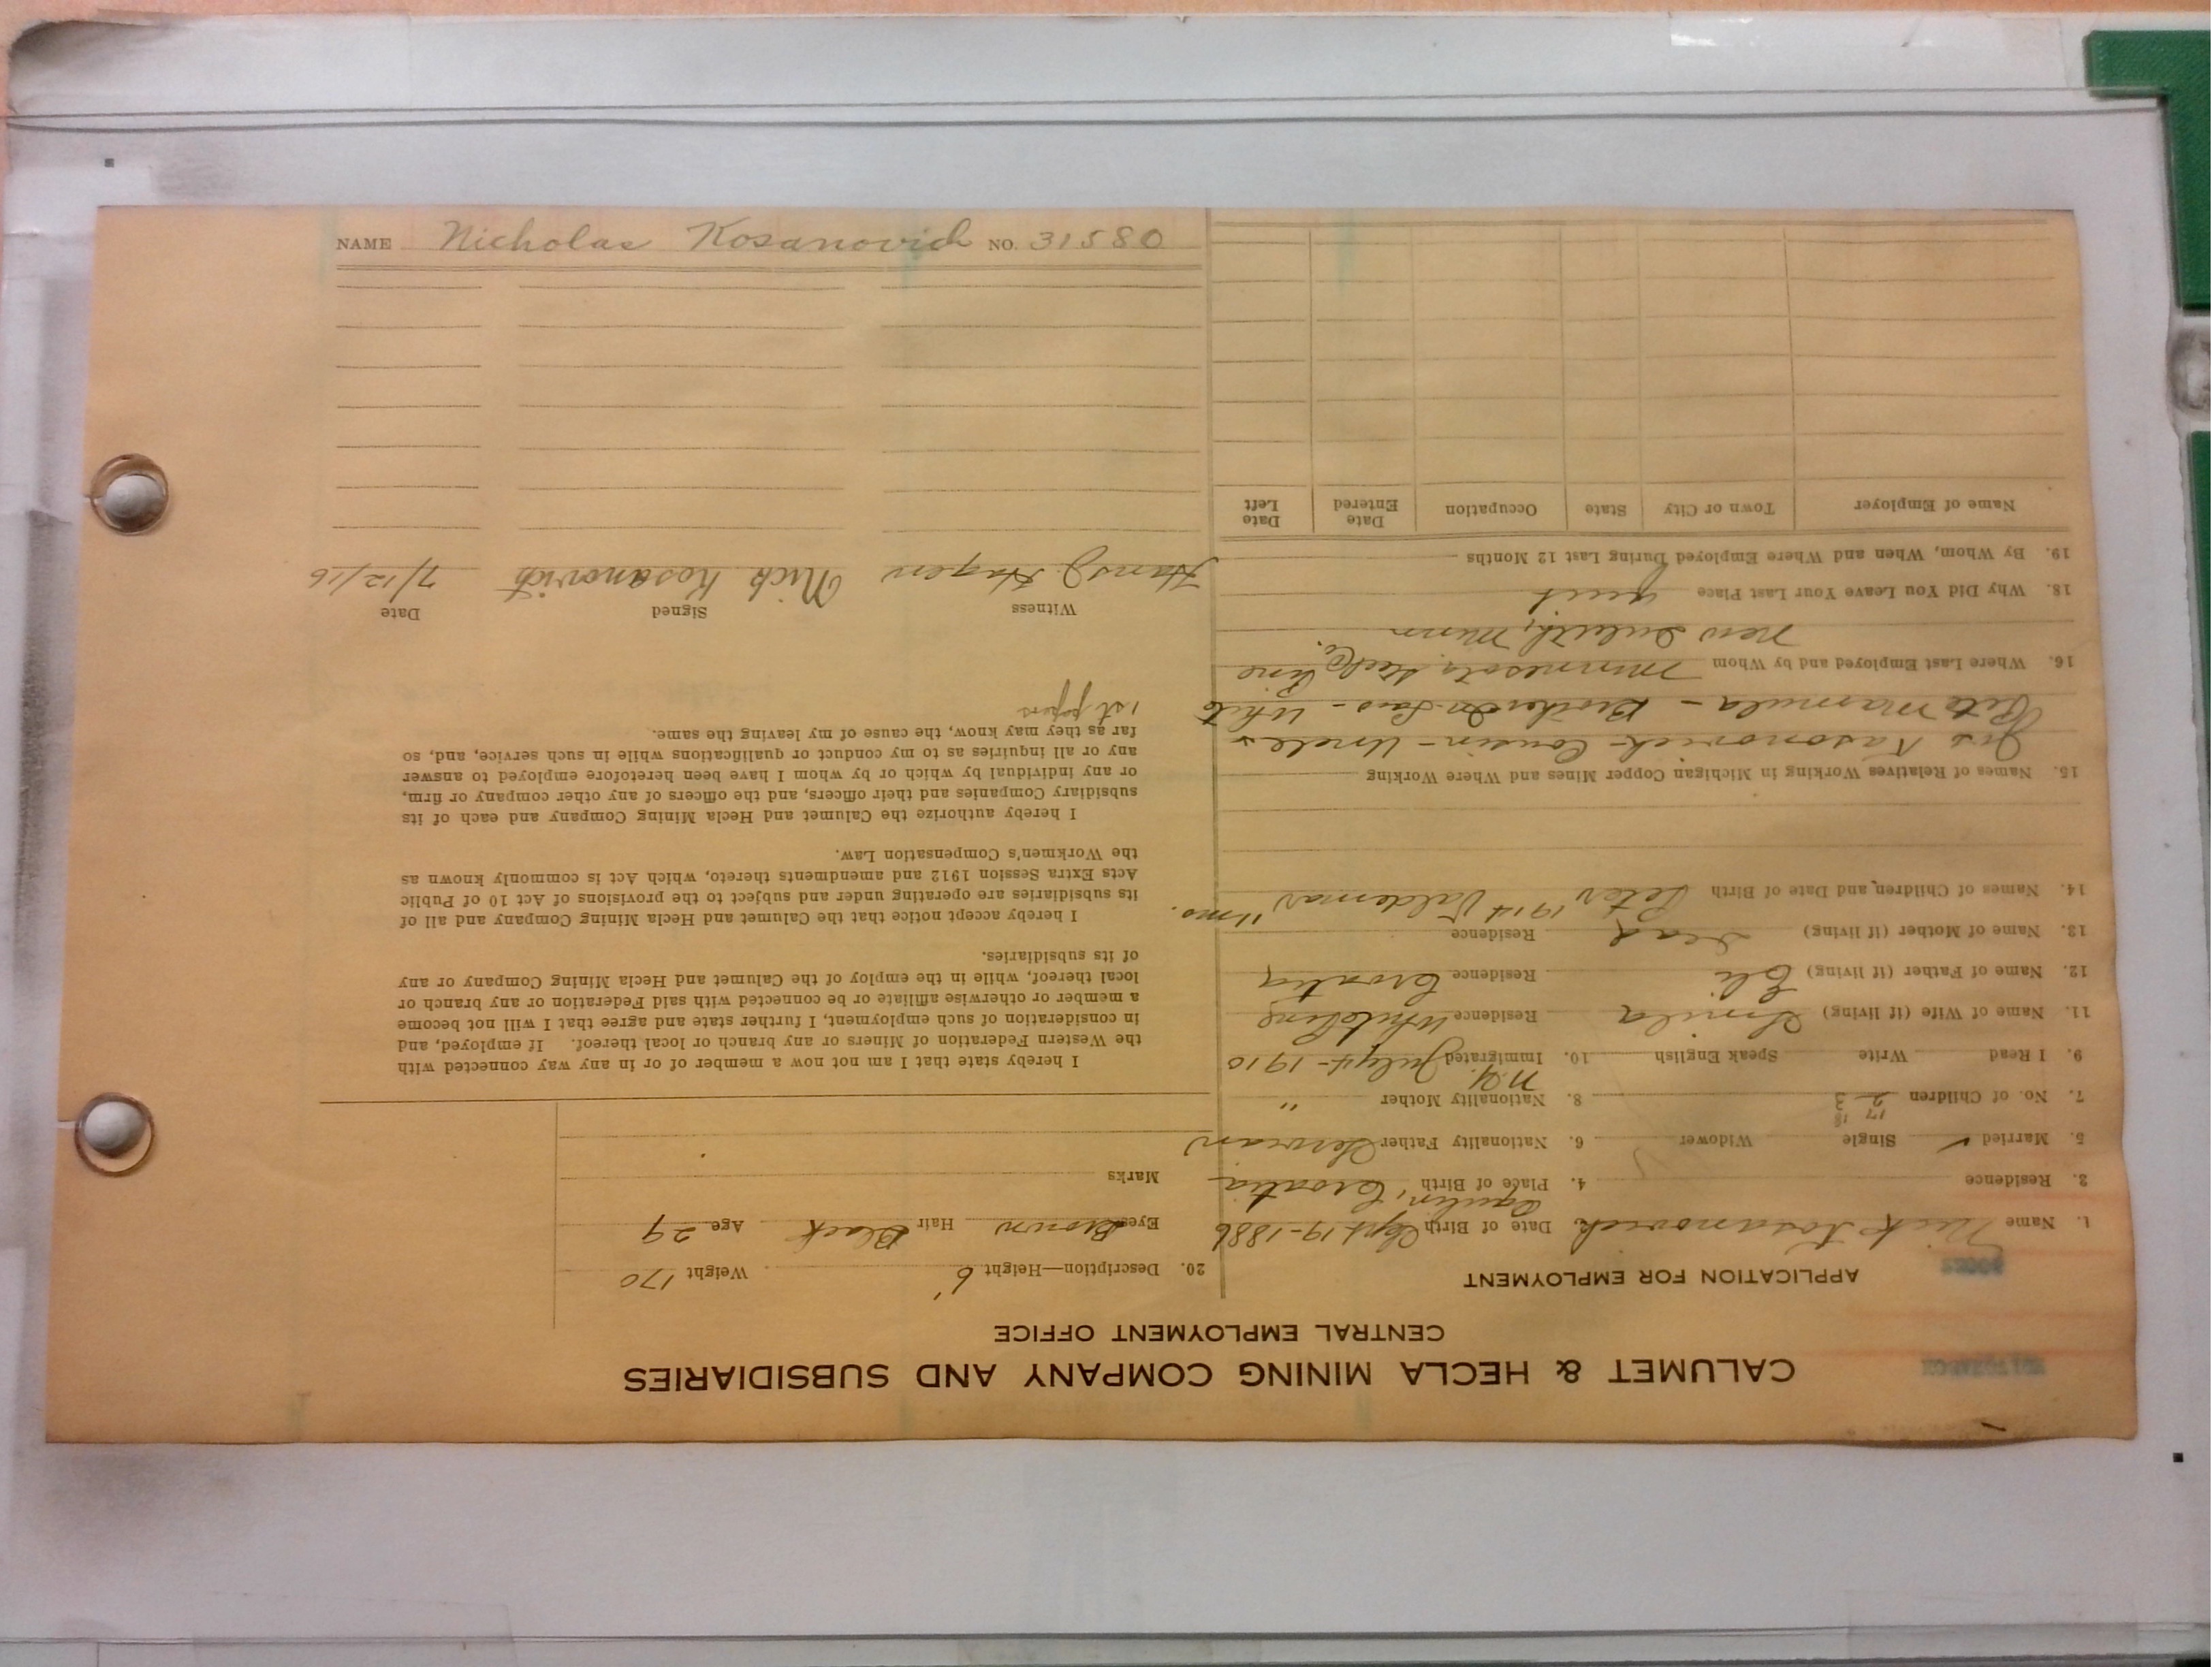 NAME Nicholas Kosanovich NO. 31580
CALUMET & HECLA MINING COMPANY AND SUBSIDIARIES
CENTRAL EMPLOYMENT OFFICE
APPLICATION FOR EMPLOYMENT
1. Name Nick Kosanovich Date of Birth Sept 19-1886
3. Residence 4. Place of Birth Croatia
5. Married ✓ Single Widower 6. Nationality Father Servian
7. No. of Children 2 3 8. Nationality Mother "
17 18
N.Y.
9. I Read Write Speak English 10. Immigrated July 4-1910
11. Name of Wife (if living) Smila Residence White Pine
12. Name of Father (if living) Eli Residence Croatia
13. Name of Mother (if living) Dead Residence
14. Names of Children, and Date of Birth Peter 1914 Valdemar 11 mo.
15. Names of Relatives Working in Michigan Copper Mines and Where Working
Kasonovich - Cousin - Uncle +
Pete Mamula - Brother In Law - White
Pine
16. Where Last Employed and by Whom Minnesota Steel Co.
New Duluth, Minn
18. Why Did You Leave Your Last Place quit
19. By Whom, When and Where Employed During Last 12 Months
Name of Employer Town or City State Occupation Date Entered Date Left
20. Description—Height 6' Weight 170
Eyes Brown Hair Black Age 29
Marks
I hereby state that I am not now a member of or in any way connected with
the Western Federation of Miners or any branch or local thereof. If employed, and
in consideration of such employment, I further state and agree that I will not become
a member or otherwise affiliate or be connected with said Federation or any branch or
local thereof, while in the employ of the Calumet and Hecla Mining Company or any
of its subsidiaries.
I hereby accept notice that the Calumet and Hecla Mining Company and all of
its subsidiaries are operating under and subject to the provisions of Act 10 of Public
Acts Extra Session 1912 and amendments thereto, which Act is commonly known as
the Workmen's Compensation Law.
I hereby authorize the Calumet and Hecla Mining Company and each of its
subsidiary Companies and their officers, and the officers of any other company or firm,
or any individual by which or by whom I have been heretofore employed to answer
any or all inquiries as to my conduct or qualifications while in such service, and, so
far as they may know, the cause of my leaving the same.
1st papers
Witness Signed Date
Hans J. Hagen Nick Kosanovich 7/12/16